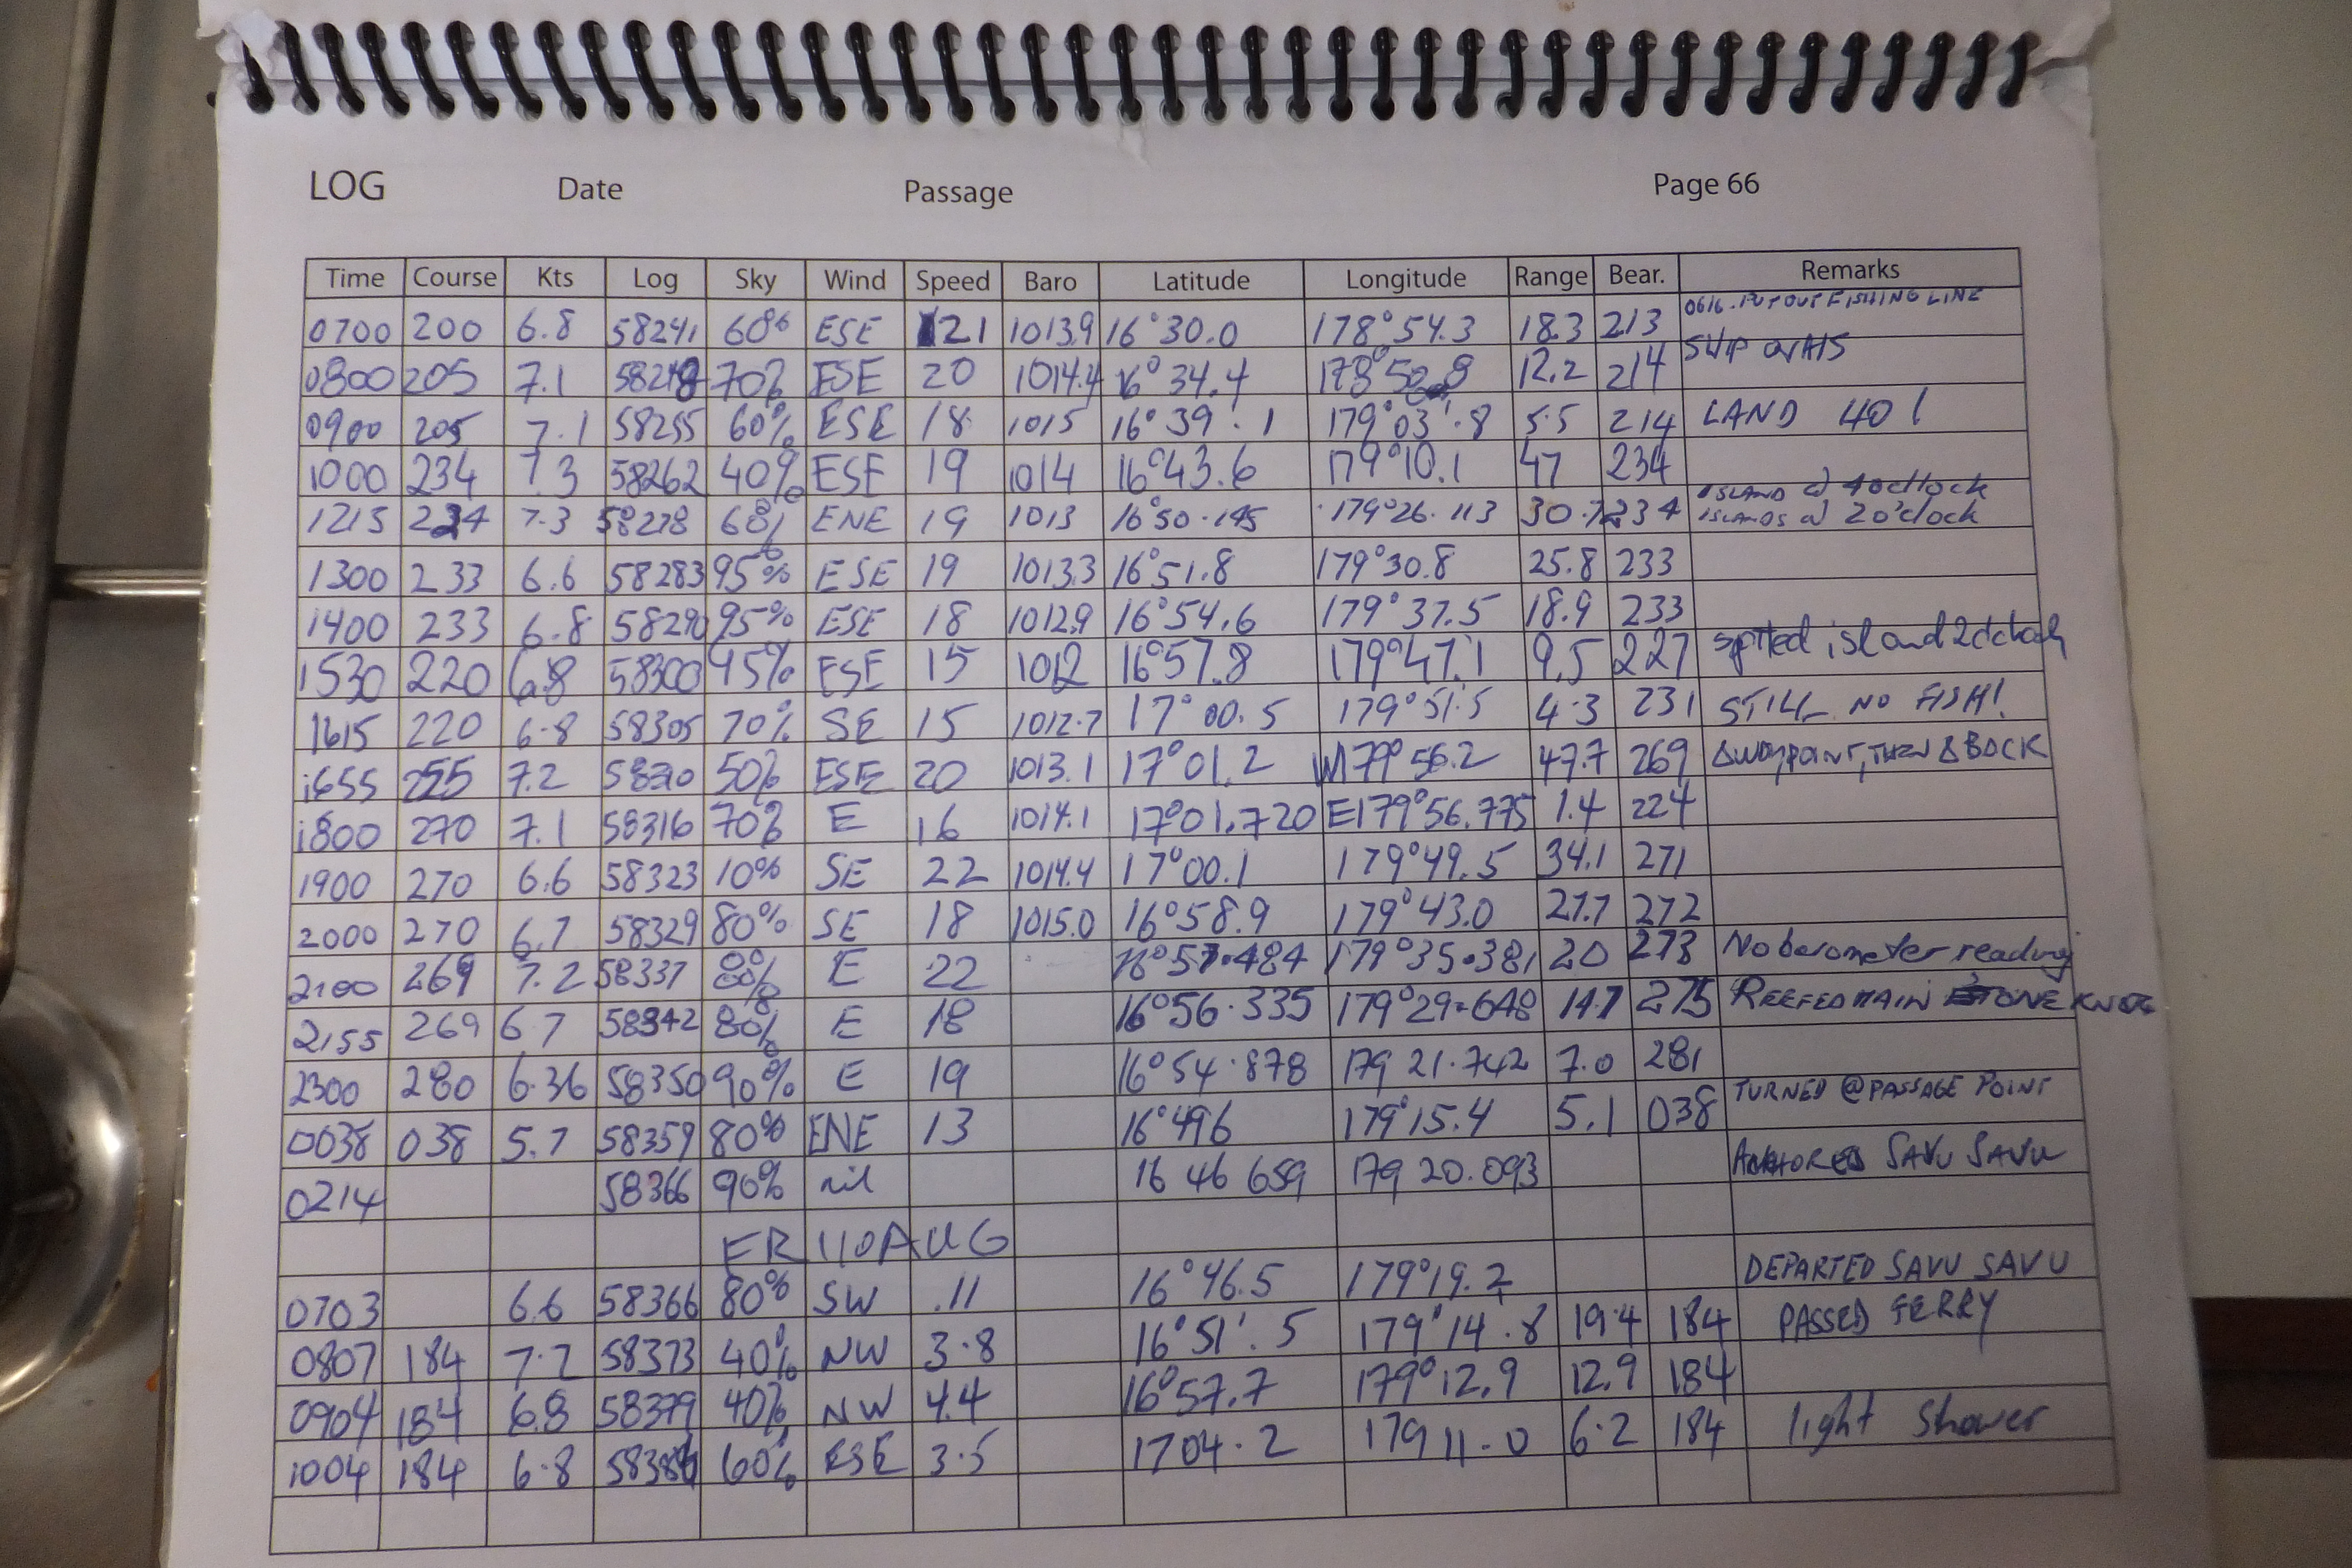 LOG Date Passage Page 66
Time Course Kts Log Sky Wind Speed Baro Latitude Longitude Range Bear. Remarks
0700 200 6.8 58241 60% ESE 21 1013.9 16°30.0 178°54.3 18.3 213 0616. PUT OUT FISHING LINE
0800 205 7.1 58248 70% ESE 20 1014.4 16°34.4 12.2 214 SHIP ON AIS
0900 205 7.1 58255 60% ESE 18 1015 16°39'.1 179°03'.8 5.5 214 LAND HO!
1000 234 7.3 58262 40% ESE 19 1014 16°43.6 179°10.1 47 234
1215 234 7.3 58278 60% ENE 19 1013 16°50.145 179°26.113 30.7 234 ISLAND @ 4o'clock
ISLANDS @ 2o'clock
1300 233 6.6 58283 95% ESE 19 1013.3 16°51.8 179°30.8 25.8 233
1400 233 6.8 58290 95% ESE 18 1012.9 16°54.6 179°37.5 18.9 233
1530 220 6.8 58300 45% ESE 15 1012 16°57.8 179°47.1 9.5 227 spotted island 2o'clock
1615 220 6.8 58305 70% SE 15 1012.7 17°00.5 179°51.5 4.3 231 STILL NO FISH!
1655 255 7.2 50% ESE 20 1013.1 17°01.2 W179°56.2 47.7 269 ΔWAYPOINT, THEN Δ BACK
1800 270 7.1 58316 70% E 16 1014.1 17°01.720 E179°56.775 1.4 224
1900 270 6.6 58323 10% SE 22 1014.4 17°00.1 179°49.5 34.1 271
2000 270 6.7 58329 80% SE 18 1015.0 16°58.9 179°43.0 27.7 272
2100 269 7.2 58337 80% E 22 16°57.484 179°35.381 20 273 No barometer reading
2155 269 6.7 58342 80% E 18 16°56.335 179°29.648 14.7 275 REEFED MAIN ONE KNOT
2300 280 6.36 58350 90% E 19 16°54.878 179 21.742 7.0 281
0038 038 5.7 58359 80% ENE 13 16°496 179°15.4 5.1 038 TURNED @ PASSAGE POINT
0214 58366 90% nil 16 46 659 179 20.093 ANCHORED SAVU SAVU
FRI 10 AUG
0703 6.6 58366 80% SW .11 16°46.5 179°19.2 DEPARTED SAVU SAVU
0807 184 7.2 58373 40% NW 3.8 16°51'.5 179°14.8 19.4 184 PASSED FERRY
0904 184 6.8 58379 40% NW 4.4 16°57.7 179°12.9 12.9 184
1004 184 6.8 58386 60% ESE 3.5 1704.2 179 11.0 6.2 184 light shower